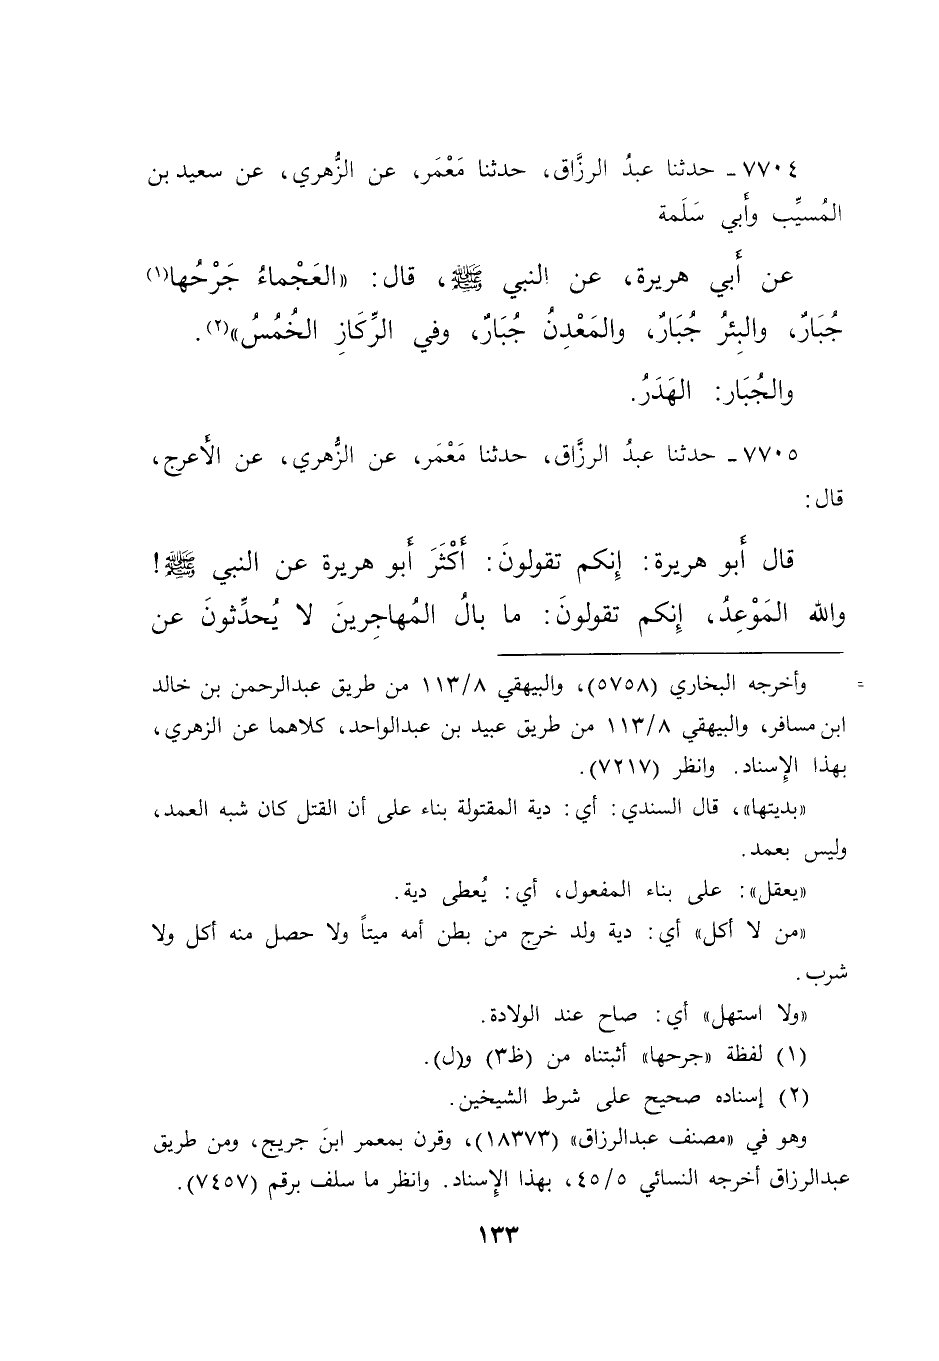 ٧٧٠٤ ـ حدثنا عبدُ الرزَّاق، حدثنا مَعْمَر، عن الزُّهري، عن سعيد بن
المُسيِّب وأَبي سَلَمة
عن أَبي هريرة، عن النبي ﷺ، قال: «العَجْماءُ جَرْحُها(١)
جُبَارٌ، والبِئرُ جُبَارٌ، والمَعْدِنُ جُبَارٌ، وفي الرِّكَازِ الخُمُسُ»(٢).
والجُبَار: الهَدَرُ.
٧٧٠٥ ـ حدثنا عبدُ الرزَّاق، حدثنا مَعْمَر، عن الزُّهري، عن الأَعرج،
قال:
قال أَبو هريرة: إنكم تقولونَ: أَكْثَرَ أَبو هريرة عن النبي ﷺ!
والله المَوْعِدُ، إنكم تقولونَ: ما بالُ المُهاجِرينَ لا يُحدِّثونَ عن
= وأخرجه البخاري (٥٧٥٨)، والبيهقي ١١٣/٨ من طريق عبدالرحمن بن خالد
ابن مسافر، والبيهقي ١١٣/٨ من طريق عبيد بن عبدالواحد، كلاهما عن الزهري،
بهذا الإسناد. وانظر (٧٢١٧).
«بديتها»، قال السندي: أي: دية المقتولة بناء على أن القتل كان شبه العمد،
وليس بعمد.
«يعقل»: على بناء المفعول، أي: يُعطى دية.
«من لا أكل» أي: دية ولد خرج من بطن أمه ميتاً ولا حصل منه أكل ولا
شرب.
«ولا استهل» أي: صاح عند الولادة.
(١) لفظة «جرحها» أثبتناه من (ظ٣) و(ل).
(٢) إسناده صحيح على شرط الشيخين.
وهو في «مصنف عبدالرزاق» (١٨٣٧٣)، وقرن بمعمر ابنَ جريج، ومن طريق
عبدالرزاق أخرجه النسائي ٤٥/٥، بهذا الإسناد. وانظر ما سلف برقم (٧٤٥٧).
١٣٣